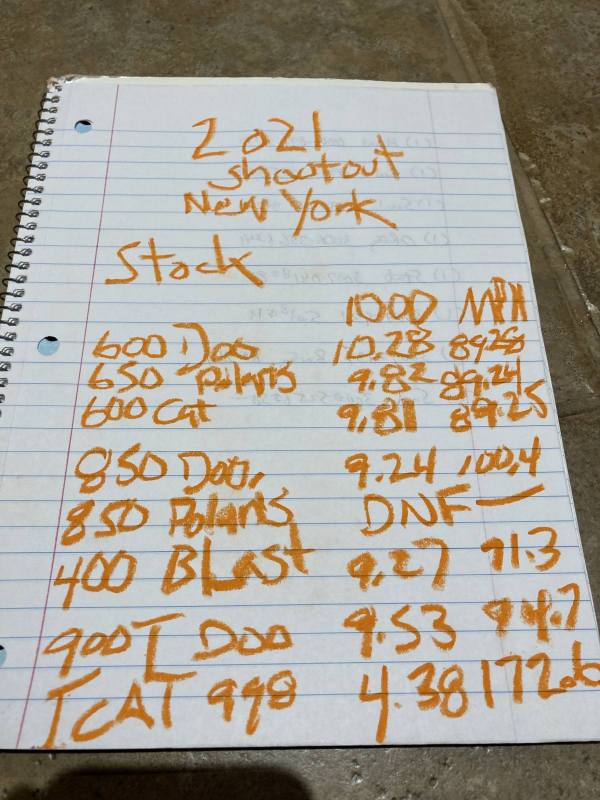 2021
shootout
New York
Stock
1000 MPH
600 Doo 10.28 89.28
650 Polaris 9.82 89.24
600 Cat 9.81 89.25
850 Doo. 9.24 100.4
850 Polaris DNF —
400 BLast 9.27 91.3
900T Doo 9.53 94.7
TCAT 998 4.38 172.6